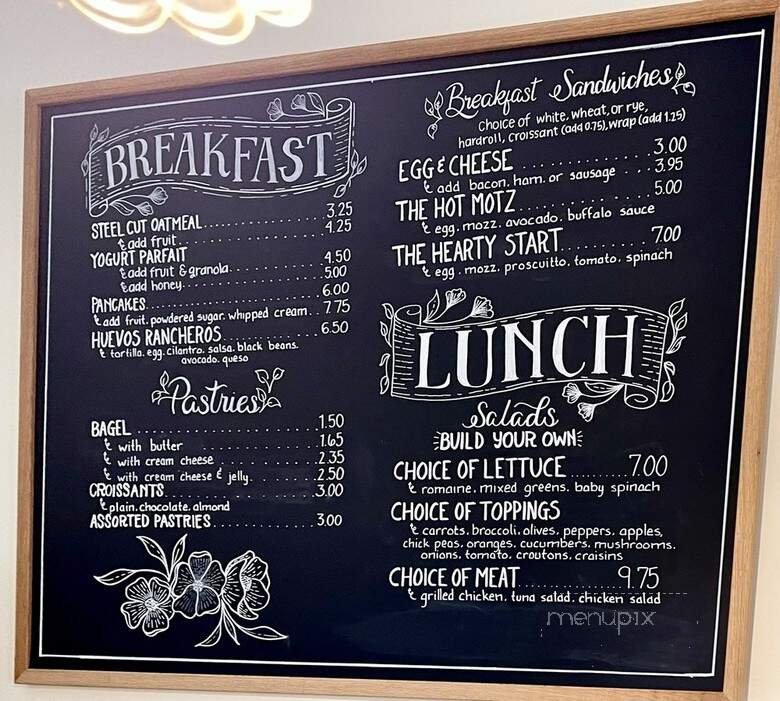 BREAKFAST
STEEL CUT OATMEAL..................3.25
& add fruit..................4.25
YOGURT PARFAIT
& add fruit & granola..................4.50
& add honey..................5.00
PANCAKES..................6.00
& add fruit, powdered sugar, whipped cream..7.75
HUEVOS RANCHEROS..................6.50
& tortilla, egg, cilantro, salsa, black beans,
avocado, queso
Pastries
BAGEL..................1.50
& with butter..................1.65
& with cream cheese..................2.35
& with cream cheese & jelly..................2.50
CROISSANTS..................3.00
& plain, chocolate, almond
ASSORTED PASTRIES..................3.00
Breakfast Sandwiches
Choice of white, wheat, or rye,
hardroll, croissant (add 0.75), wrap (add 1.25)
EGG & CHEESE..................3.00
& add bacon, ham, or sausage...3.95
THE HOT MOTZ..................5.00
& egg, mozz, avocado, buffalo sauce
THE HEARTY START..................7.00
& egg, mozz, proscuitto, tomato, spinach
LUNCH
Salads
BUILD YOUR OWN
CHOICE OF LETTUCE..........7.00
& romaine, mixed greens, baby spinach
CHOICE OF TOPPINGS
& carrots, broccoli, olives, peppers, apples,
chick peas, oranges, cucumbers, mushrooms,
onions, tomato, croutons, craisins
CHOICE OF MEAT..............9.75
& grilled chicken, tuna salad, chicken salad
menupix